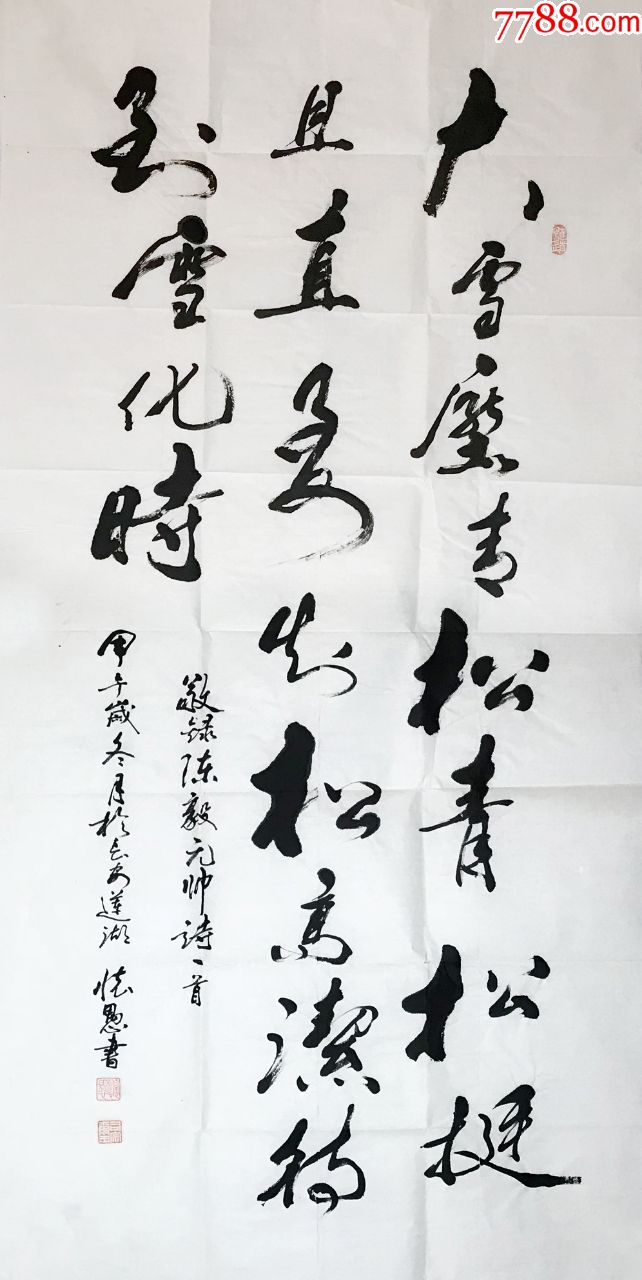 7788.com
大雪壓青松青松挺
且直要知松高潔待
到雪化時
敬錄陈毅元帅詩一首
甲午歲冬月於长安蓮湖 懷愚書